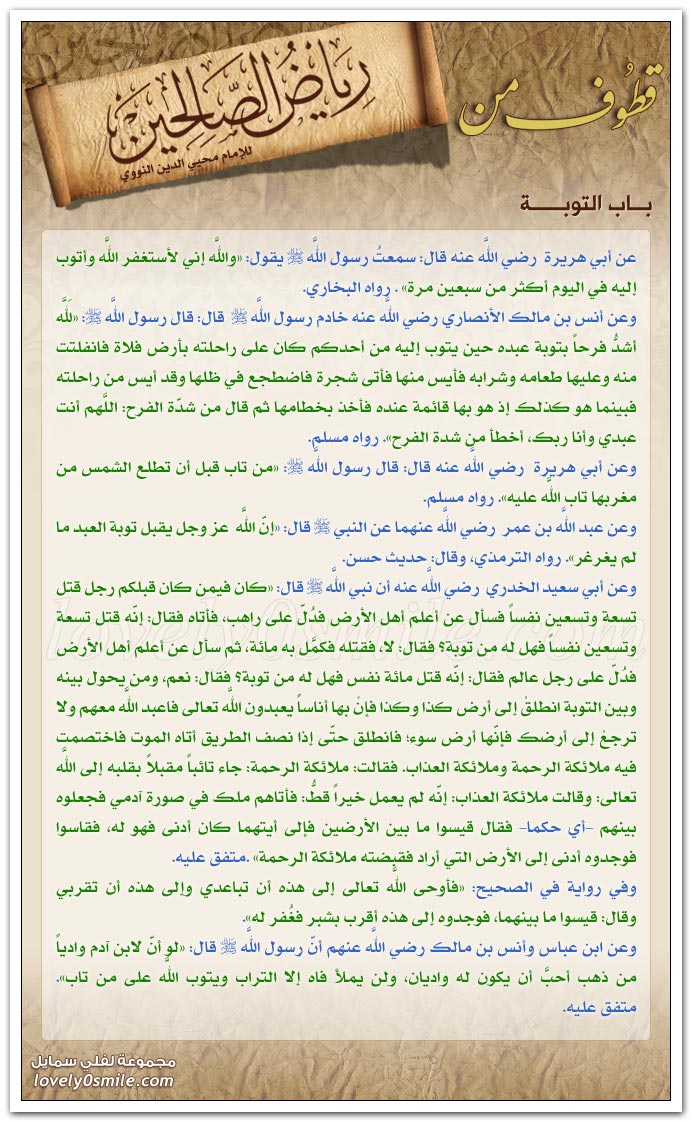 قطوف من
رياض الصالحين
للإمام محيي الدين النووي
باب التوبة
عن أبي هريرة رضي اللَّه عنه قال: سمعتُ رسول اللَّه ﷺ يقول: «واللَّه إني لأستغفر اللَّه وأتوب
إليه في اليوم أكثر من سبعين مرة» . رواه البخاري.
وعن أنس بن مالك الأنصاري رضي اللَّه عنه خادم رسول اللَّه ﷺ قال: قال رسول اللَّه ﷺ: «للَّه
أشدُّ فرحاً بتوبة عبده حين يتوب إليه من أحدكم كان على راحلته بأرض فلاة فانفلتت
منه وعليها طعامه وشرابه فأيس منها فأتى شجرة فاضطجع في ظلها وقد أيس من راحلته
فبينما هو كذلك إذ هو بها قائمة عنده فأخذ بخطامها ثم قال من شدّة الفرح: اللَّهم أنت
عبدي وأنا ربك، أخطأ من شدة الفرح». رواه مسلم.
وعن أبي هريرة رضي اللَّه عنه قال: قال رسول اللَّه ﷺ: «من تاب قبل أن تطلع الشمس من
مغربها تاب اللَّه عليه». رواه مسلم.
وعن عبد اللَّه بن عمر رضي اللَّه عنهما عن النبي ﷺ قال: «إنّ اللَّه عز وجل يقبل توبة العبد ما
لم يغرغر». رواه الترمذي، وقال: حديث حسن.
وعن أبي سعيد الخدري رضي اللَّه عنه أن نبي اللَّه ﷺ قال: «كان فيمن كان قبلكم رجل قتل
تسعة وتسعين نفساً فسأل عن أعلم أهل الأرض فدُلّ على راهب، فأتاه فقال: إنّه قتل تسعة
وتسعين نفساً فهل له من توبة؟ فقال: لا، فقتله فكمَّل به مائة، ثم سأل عن أعلم أهل الأرض
فدُلّ على رجل عالم فقال: إنّه قتل مائة نفس فهل له من توبة؟ فقال: نعم، ومن يحول بينه
وبين التوبة انطلقْ إلى أرض كذا وكذا فإنْ بها أناساً يعبدون اللَّه تعالى فاعبد اللَّه معهم ولا
ترجعْ إلى أرضك فإنّها أرض سوء؛ فانطلق حتّى إذا نصف الطريق أتاه الموت فاختصمت
فيه ملائكة الرحمة وملائكة العذاب. فقالت: ملائكة الرحمة: جاء تائباً مقبلاً بقلبه إلى اللَّه
تعالى: وقالت ملائكة العذاب: إنّه لم يعمل خيراً قطُّ: فأتاهم ملك في صورة آدمي فجعلوه
بينهم –أي حكما– فقال قيسوا ما بين الأرضين فإلى أيتهما كان أدنى فهو له، فقاسوا
فوجدوه أدنى إلى الأرض التي أراد فقبضته ملائكة الرحمة» .متفق عليه.
وفي رواية في الصحيح: «فأوحى اللَّه تعالى إلى هذه أن تباعدي وإلى هذه أن تقربي
وقال: قيسوا ما بينهما، فوجدوه إلى هذه أقرب بشبر فغُفر له».
وعن ابن عباس وأنس بن مالك رضي اللَّه عنهم أنّ رسول اللَّه ﷺ قال: «لو أنّ لابن آدم وادياً
من ذهب أحبَّ أن يكون له واديان، ولن يملأ فاه إلا التراب ويتوب اللَّه على من تاب».
متفق عليه.
lovely0smile.com
مجموعة لفلي سمايل
lovely0smile.com